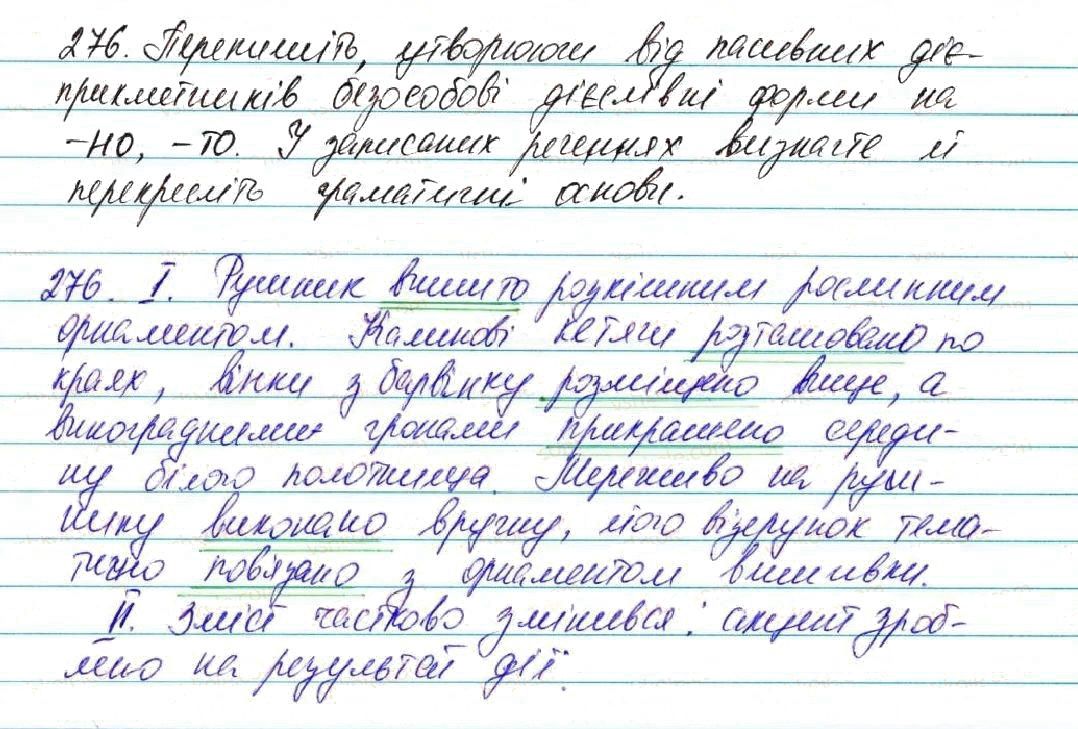 276. Перепишіть, утворюючи від пасивних діє-
прикметників безособові дієслівні форми на
-но, -то. У записаних реченнях визначте й
перекресліть граматичні основи.
276. І. Рушник вишито розкішним рослинним
орнаментом. Калинові кетяги розташовано по
краях, вінки з барвінку розміщено вище, а
виноградними гронами прикрашено середи-
ну білого полотнища. Мереживо на руш-
нику виконано вручну, його візерунок тема-
тично пов'язано з орнаментом вишивки.
ІІ. Зміст частково змінився: акцент зроб-
лено на результаті дії.